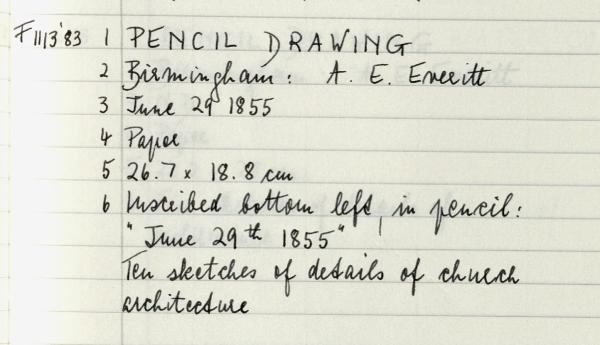 F1113'83 1 PENCIL DRAWING
2 Birmingham: A. E. Everitt
3 June 29 1855
4 Paper
5 26.7 x 18.8 cm
6 Inscribed bottom left, in pencil:
"June 29th 1855"
Ten sketches of details of church
architecture